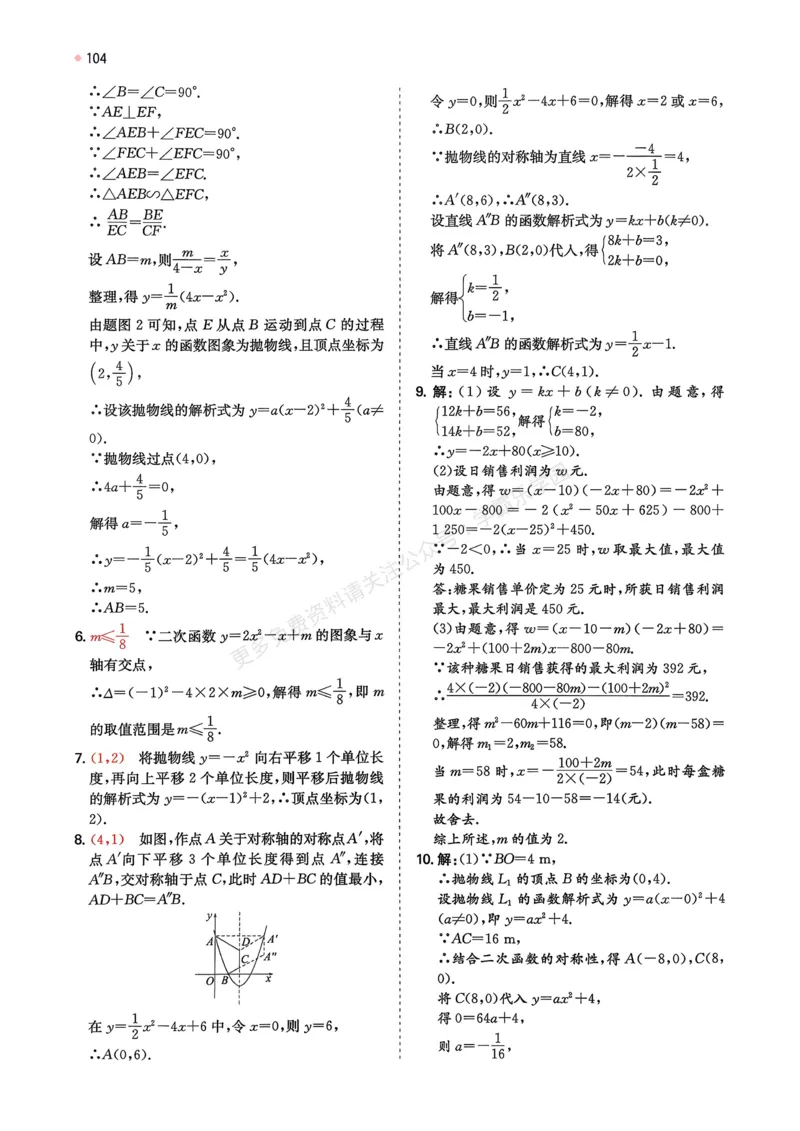 104
∴∠B=∠C=90°.
∵AE⊥EF,
∴∠AEB+∠FEC=90°.
∵∠FEC+∠EFC=90°,
∴∠AEB=∠EFC.
∴△AEB∽△EFC,
∴ AB/EC=BE/CF.
设 AB=m,则 m/(4-x)=x/y,
整理,得 y=1/m(4x-x²).
由题图 2 可知,点 E 从点 B 运动到点 C 的过程
中,y 关于 x 的函数图象为抛物线,且顶点坐标为
(2,4/5),
∴设该抛物线的解析式为 y=a(x-2)²+4/5(a≠
0).
∵抛物线过点(4,0),
∴4a+4/5=0,
解得 a=-1/5,
∴y=-1/5(x-2)²+4/5=1/5(4x-x²),
∴m=5,
∴AB=5.
6. m≤1/8 ∵二次函数 y=2x²-x+m 的图象与 x
轴有交点,
∴Δ=(-1)²-4×2×m≥0,解得 m≤1/8,即 m
的取值范围是 m≤1/8.
7. (1,2) 将抛物线 y=-x² 向右平移 1 个单位长
度,再向上平移 2 个单位长度,则平移后抛物线
的解析式为 y=-(x-1)²+2,∴顶点坐标为(1,
2).
8. (4,1) 如图,作点 A 关于对称轴的对称点 A′,将
点 A′向下平移 3 个单位长度得到点 A″,连接
A″B,交对称轴于点 C,此时 AD+BC 的值最小,
AD+BC=A″B.
y
A D A′
C A″
O B x
在 y=1/2x²-4x+6 中,令 x=0,则 y=6,
∴A(0,6).
令 y=0,则1/2x²-4x+6=0,解得 x=2 或 x=6,
∴B(2,0).
∵抛物线的对称轴为直线 x=-(-4)/(2×1/2)=4,
∴A′(8,6),∴A″(8,3).
设直线 A″B 的函数解析式为 y=kx+b(k≠0).
将 A″(8,3),B(2,0)代入,得{8k+b=3,
2k+b=0,
解得{k=1/2,
b=-1,
∴直线 A″B 的函数解析式为 y=1/2x-1.
当 x=4 时,y=1,∴C(4,1).
9. 解:(1)设 y=kx+b(k≠0). 由题意,得
{12k+b=56, 解得{k=-2,
14k+b=52, b=80,
∴y=-2x+80(x≥10).
(2)设日销售利润为 w 元.
由题意,得 w=(x-10)(-2x+80)=-2x²+
100x-800=-2(x²-50x+625)-800+
1 250=-2(x-25)²+450.
∵-2<0,∴当 x=25 时,w 取最大值,最大值
为 450.
答:糖果销售单价定为 25 元时,所获日销售利润
最大,最大利润是 450 元.
(3)由题意,得 w=(x-10-m)(-2x+80)=
-2x²+(100+2m)x-800-80m.
∵该种糖果日销售获得的最大利润为 392 元,
∴(4×(-2)(-800-80m)-(100+2m)²)/(4×(-2))=392.
整理,得 m²-60m+116=0,即(m-2)(m-58)=
0,解得 m₁=2,m₂=58.
当 m=58 时,x=-(100+2m)/(2×(-2))=54,此时每盒糖
果的利润为 54-10-58=-14(元).
故舍去.
综上所述,m 的值为 2.
10. 解:(1)∵BO=4 m,
∴抛物线 L₁ 的顶点 B 的坐标为(0,4).
设抛物线 L₁ 的函数解析式为 y=a(x-0)²+4
(a≠0),即 y=ax²+4.
∵AC=16 m,
∴结合二次函数的对称性,得 A(-8,0),C(8,
0).
将 C(8,0)代入 y=ax²+4,
得 0=64a+4,
则 a=-1/16,